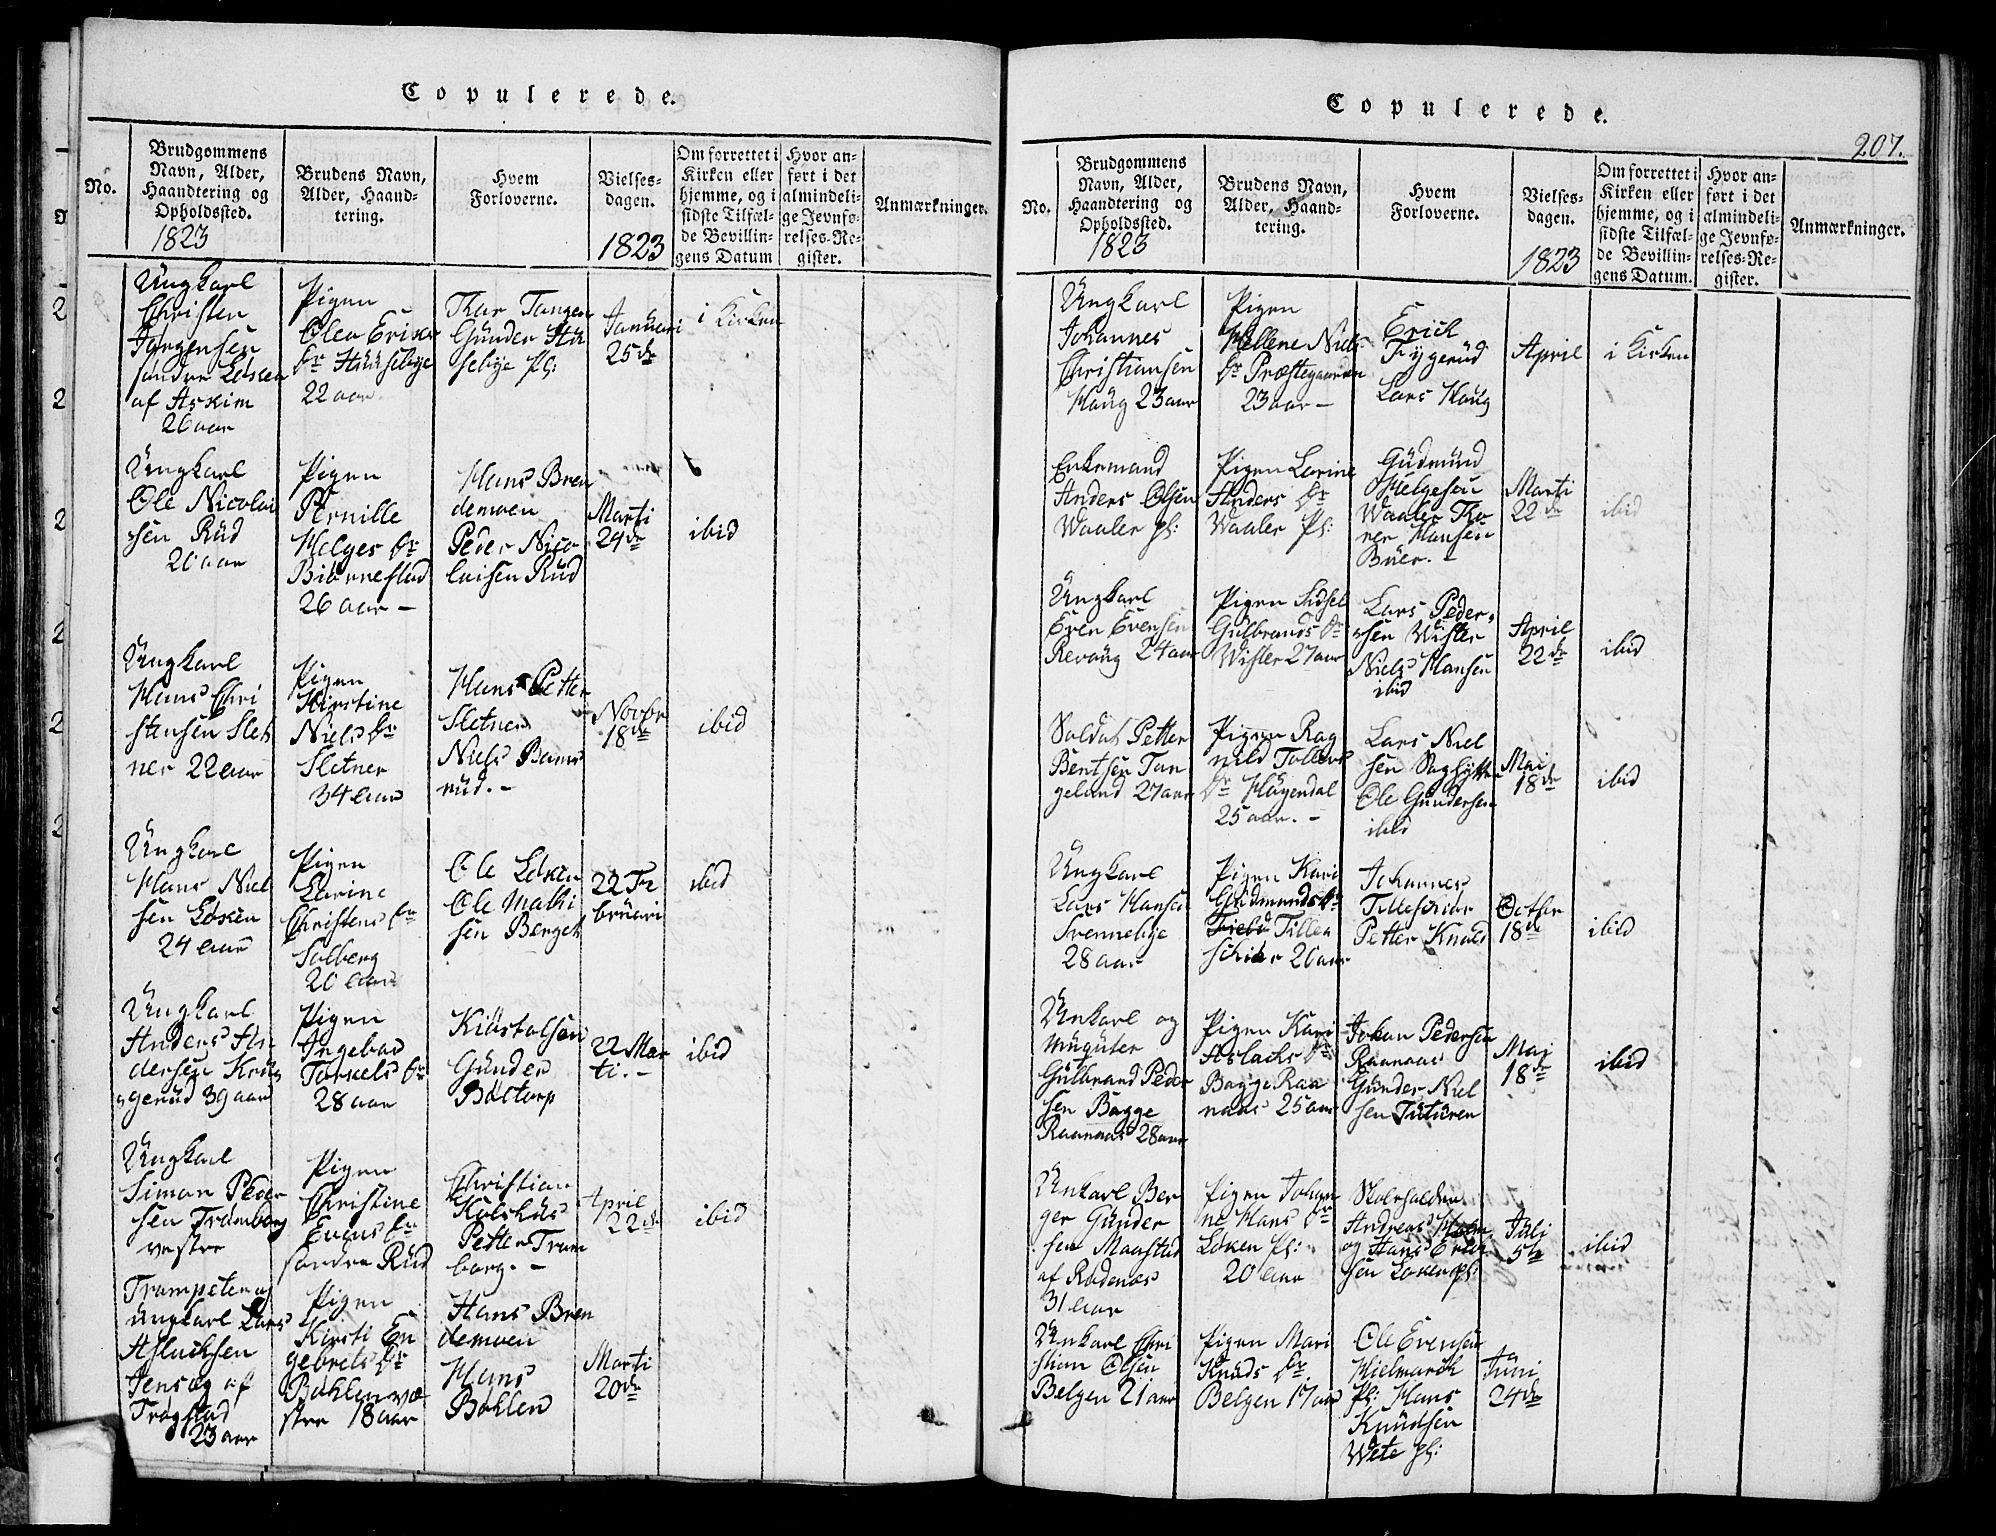 Copulerede.
No.
Brudgommens
Navn, Alder,
Haandtering og
Opholdssted.
1823
Brudens Navn,
Alder, Haand-
tering.
Hvem
Forloverne.
Vielses-
dagen.
1823
Om forrettet i
Kirken eller
hjemme, og i
sidste Tilfæl-
de Bevillin-
gens Datum
Hvor an-
ført i det
almindeli-
ge Jevnfø-
relses-Re-
gister.
Anmærkninger.
Ungkarl
Christen
Jørgensen
søndre Løken
af Askim
26 aar
Pigen
Olea Erics
dr Huusebye
22 aar
Thor Tangen
Gunder Huu
sebye pl:
Januari
25de
i Kirken
Ungkarl
Ole Nicolai
sen Rud
20 aar
Pigen
Pernille
Helges dr
Biørnestad
26 aar -
Hans Bren
demoen
Peder Nico
laisen Rud
Marti
29de
ibid
Ungkarl
Hans Chri
stensen Slet
ner 22 aar
Pigen
Kirstine
Niels dr
Sletner
34 aar
Hans Petter
Sletner
Niels Rams
rud. -
Novbr
18de
ibid
Ungkarl
Hans Niel
sen Løken
24 aar
Pigen
Larine
Christens dr
Solberg
20 aar
Ole Løken
Ole Mathi
sen Berget
22 Fe
bruari
ibid
Ungkarl
Anders An
dersen
gerud 39 aar
Pigen
Ingebor
Torkels dr
28 aar
Gunder
Boltorp
22 Mar
ti. -
ibid
Ungkarl
Simon Peder
sen Trømborg
vestre
Pigen
Christine
Evens dr
søndre Rud
Christian
Kolshus
Petter Trøm
borg. -
April
22de
ibid
Trompeter og
ungkarl Lars
Aslacksen
Jensæg af
Trøgstad
23 aar
Pigen
Kirsti En
gebrets dr
Bøhlen væ
stre 18 aar
Hans Bren
demoen
Hans
Bøhlen
Marti
20de
Copulerede.
207.
No.
Brudgommens
Navn, Alder,
Haandtering og
Opholdssted.
1823
Brudens Navn,
Alder, Haand-
tering.
Hvem
Forloverne.
Vielses-
dagen.
1823
Om forrettet i
Kirken eller
hjemme, og i
sidste Tilfæl-
de Bevillin-
gens Datum.
Hvor an-
ført i det
almindeli-
ge Jevnfø-
relses-Re-
gister.
Anmærkninger.
Ungkarl
Johannes
Christiansen
Haug 23 aar
Pigen
Hellene Niels
dr Præstegaarden
23 aar -
Erich
Trygerud
Lars Haug
April
i Kirken
Enkemand
Anders Olsen
Waaler pl:
Pigen Larine
Anders dr
Waaler pl:
Gudmund
Helgesen
Waaler Tho
rer Hansen
Buer. -
Marti
22de
ibid
Ungkarl
Even Evensen
Revaug 24 aar
Pigen Sidsel
Gulbrands dr
Wister 27 aar
Lars Peder
sen Wister
Niels Hansen
ibid
April
22de
ibid
Soldat Petter
Bentsen Tan
geland 27 aar
Pigen Rag
nild Tollevs
dr Hagendal
25 aar. -
Lars Niel
sen Saghytten
Ole Gundersen
ibid
Mai
18de
ibid
Ungkarl
Lars Hansen
Svennebye
28 aar
Pigen Kari
Gudmunds dr
Tillea
schier 26 aar
Johannes
Petter Knold
Octbr
18de
ibid
Unkarl og
Musqüter
Gulbrand Peder
sen Bagge
Raanaas 28 aar
Pigen Kari
Aslachs dr
Bagge Raa
naas 25 aar
Johan Pedersen
Raanaas
Gunder Niel
sen Tuturen
Mai
18de
ibid
Unkarl Ber
ger Gunder
sen Maastad
af Rødenæs
31 aar
Pigen Johan
ne Hans dr
Løken pl:
20 aar
Skoleholder
Andreas Holm
og Hans Erich
sen Løken pl:
Juli
5te
ibid
Unkarl Chri
stian Olsen
Belgen 21 aar
Pigen Mari
Knuds dr
Belgen 17 aar
Ole Evensen
Hielmarck
pl: Hans
Knudsen
Wete pl:
Juni
24de